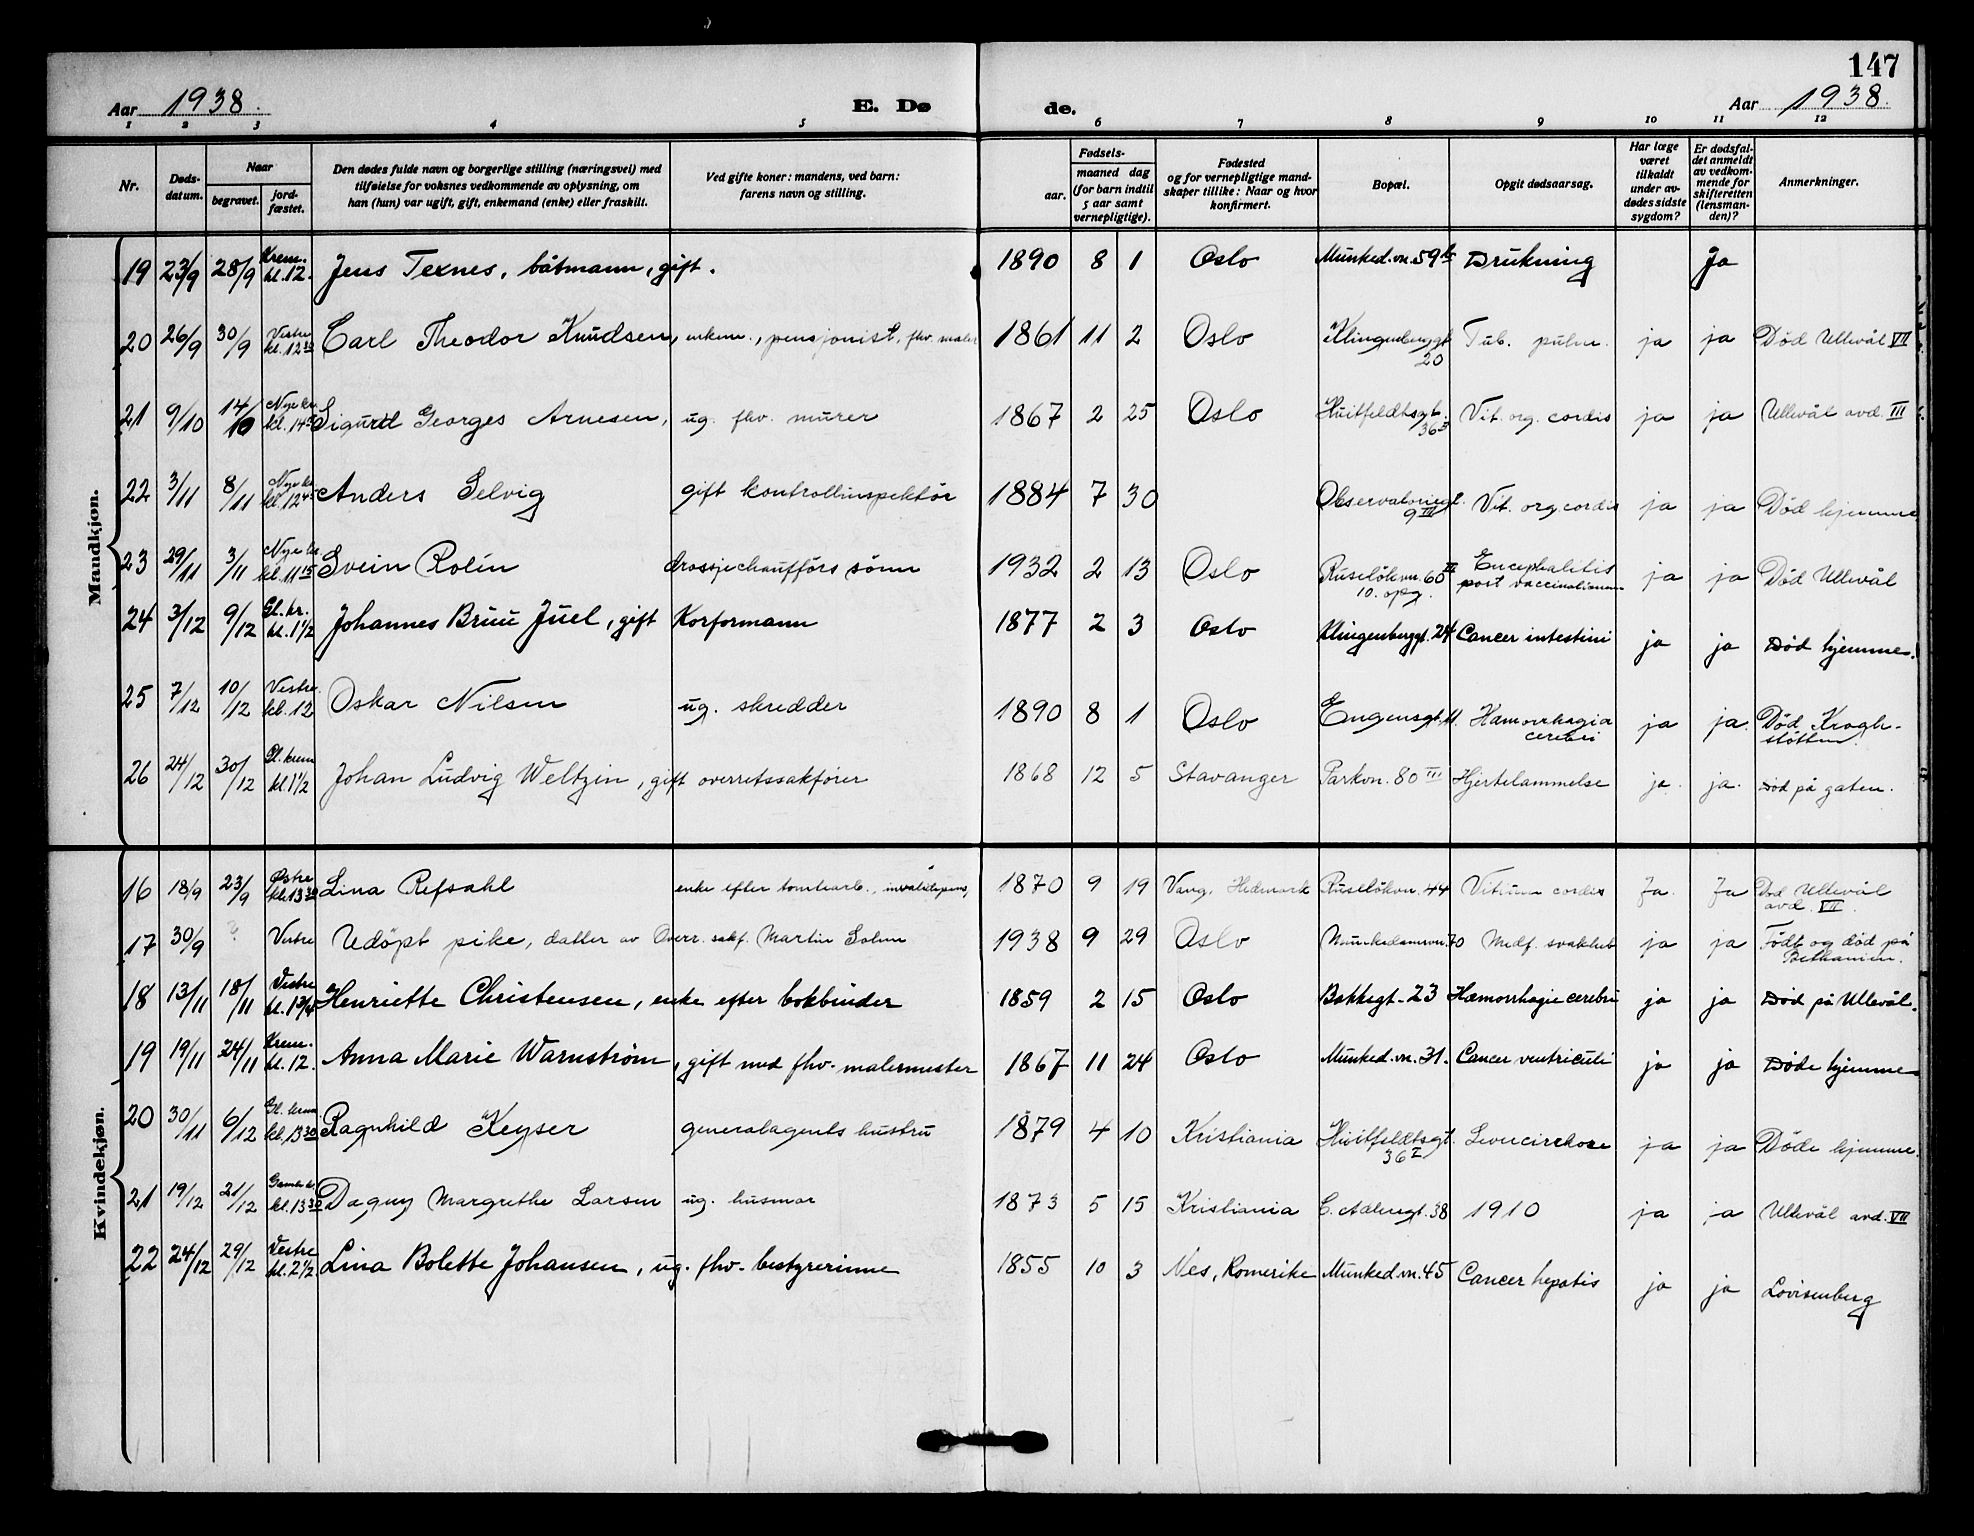 147
Aar 1938. E. Dø de. Aar 1938.
1 2 3 4 5 6 7 8 9 10 11 12
Nr. Døds-datum. Naar begravet. jord-fæstet. Den dødes fulde navn og borgerlige stilling (næringsvei) med tilføielse for voksnes vedkommende av oplysning, om han (hun) var ugift, gift, enkemand (enke) eller fraskilt. Ved gifte koner: mandens, ved barn: farens navn og stilling. Fødsels- aar. maaned dag (for barn indtil 5 aar samt vernepligtige). Fødested og for vernepligtige mand-skaper tillike: Naar og hvor konfirmert. Bopæl. Opgit dødsaarsag. Har læge været tilkaldt under av-dødes sidste sygdom? Er dødsfal-det anmeldt av vedkom-mende for skifteretten (lensman-den)? Anmerkninger.
Mandkjøn.
19 23/9 28/9 Krem. kl. 12. Jens Texnes, båtmann, gift. 1890 8 1 Oslo Munked.vn. 59 Drukning Ja
20 26/9 30/9 Vestre kl. 12 Carl Theodor Knudsen, enkem., pensjonist, fhv. maler 1861 11 2 Oslo Klingenberggt 20 Tub. pulm. ja ja Død Ullevål VII
21 9/10 14/10 Nye kr. kl. 14 Sigurd Georges Arnesen, ug. fhv. murer 1867 2 25 Oslo Huitfeldtsgt. 36 Vit. org. cordis ja ja Ullevål avd. III
22 3/11 8/11 Nye kr. kl. 12 45 Anders Selvig gift kontrollinspektør 1884 7 30 Observatoriegt. 9 III Vit. org. cordis ja ja Død hjemme
23 29/11 3/11 Nye kr. kl. 11 15 Svein Rolin drossjechaufførs sønn 1932 2 13 Oslo Ruseløkvn. 60 III 10. opg. Encephalitis post vaccinationem ja ja Død Ullevål
24 3/12 9/12 Gl. kr. kl. 1 1/2 Johannes Bruu Juel, gift Korformann 1877 2 3 Oslo Klingenberggt. 24 Cancer intestini ja ja Død hjemme.
25 7/12 10/12 Vestre kl. 12 Oskar Nilsen ug. skredder 1890 8 1 Oslo Eugensgt. 11. Hæmorrhagia cerebri ja ja. Død Krogh-støtten.
26 24/12 30/12 Gl. krem kl. 1 1/2 Johan Ludvig Weltzin, gift overretssakfører 1868 12 5 Stavanger Parkvn. 80 III Hjertelammelse ja. ja. Død på gaten.
Kvindekjøn.
16 18/9 23/9 Østre kl. 13 30 Lina Refsahl enke efter tomtearb., invalidepens, 1870 9 19 Vang, Hedmark Ruseløkvn. 44 Vitium cordis Ja. Ja Død Ullevål avd. VII.
17 30/9 ? Vestre Udöpt pike, datter av Overr. sakf. Martin Solum 1938 9 29 Oslo Munkedamsvn. 70 Medf. svakhet ja ja Født og død på Bethanien.
18 13/11 18/11 Vestre kl. 13/4 Henriette Christensen, enke efter bokbinder 1859 2 15 Oslo Bakkegt. 23 Hæmorrhagie cerebri ja ja Død på Ullevål.
19 19/11 24/11 Krem. kl. 12. Anna Marie Warnstrøm, gift med fhv. malermester 1867 11 24 Oslo Munked.vn. 31. Cancer ventriculi ja ja Døde hjemme
20 30/11 6/12 Gl. krem. kl. 13 30 Ragnhild Keyser generalagents hustru 1879 4 10 Kristiania Huitfeldtsgt. 36 I Levercirrhose ja ja Døde hjemme.
21 19/12 21/12 Gamle kr. kl. 13 30 Dagny Margrethe Larsen ug. husmor 1873 5 15 Kristiania C. Adlersgt. 38 1910 ja ja Ullevål avd. VII
22 24/12 29/12 Vestre kl. 2 1/2. Lina Bolette Johansen, ug. fhv. bestyrerinne 1855 10 3 Nes, Romerike Munked.vn. 45 Cancer hepatis ja ja Lovisenberg